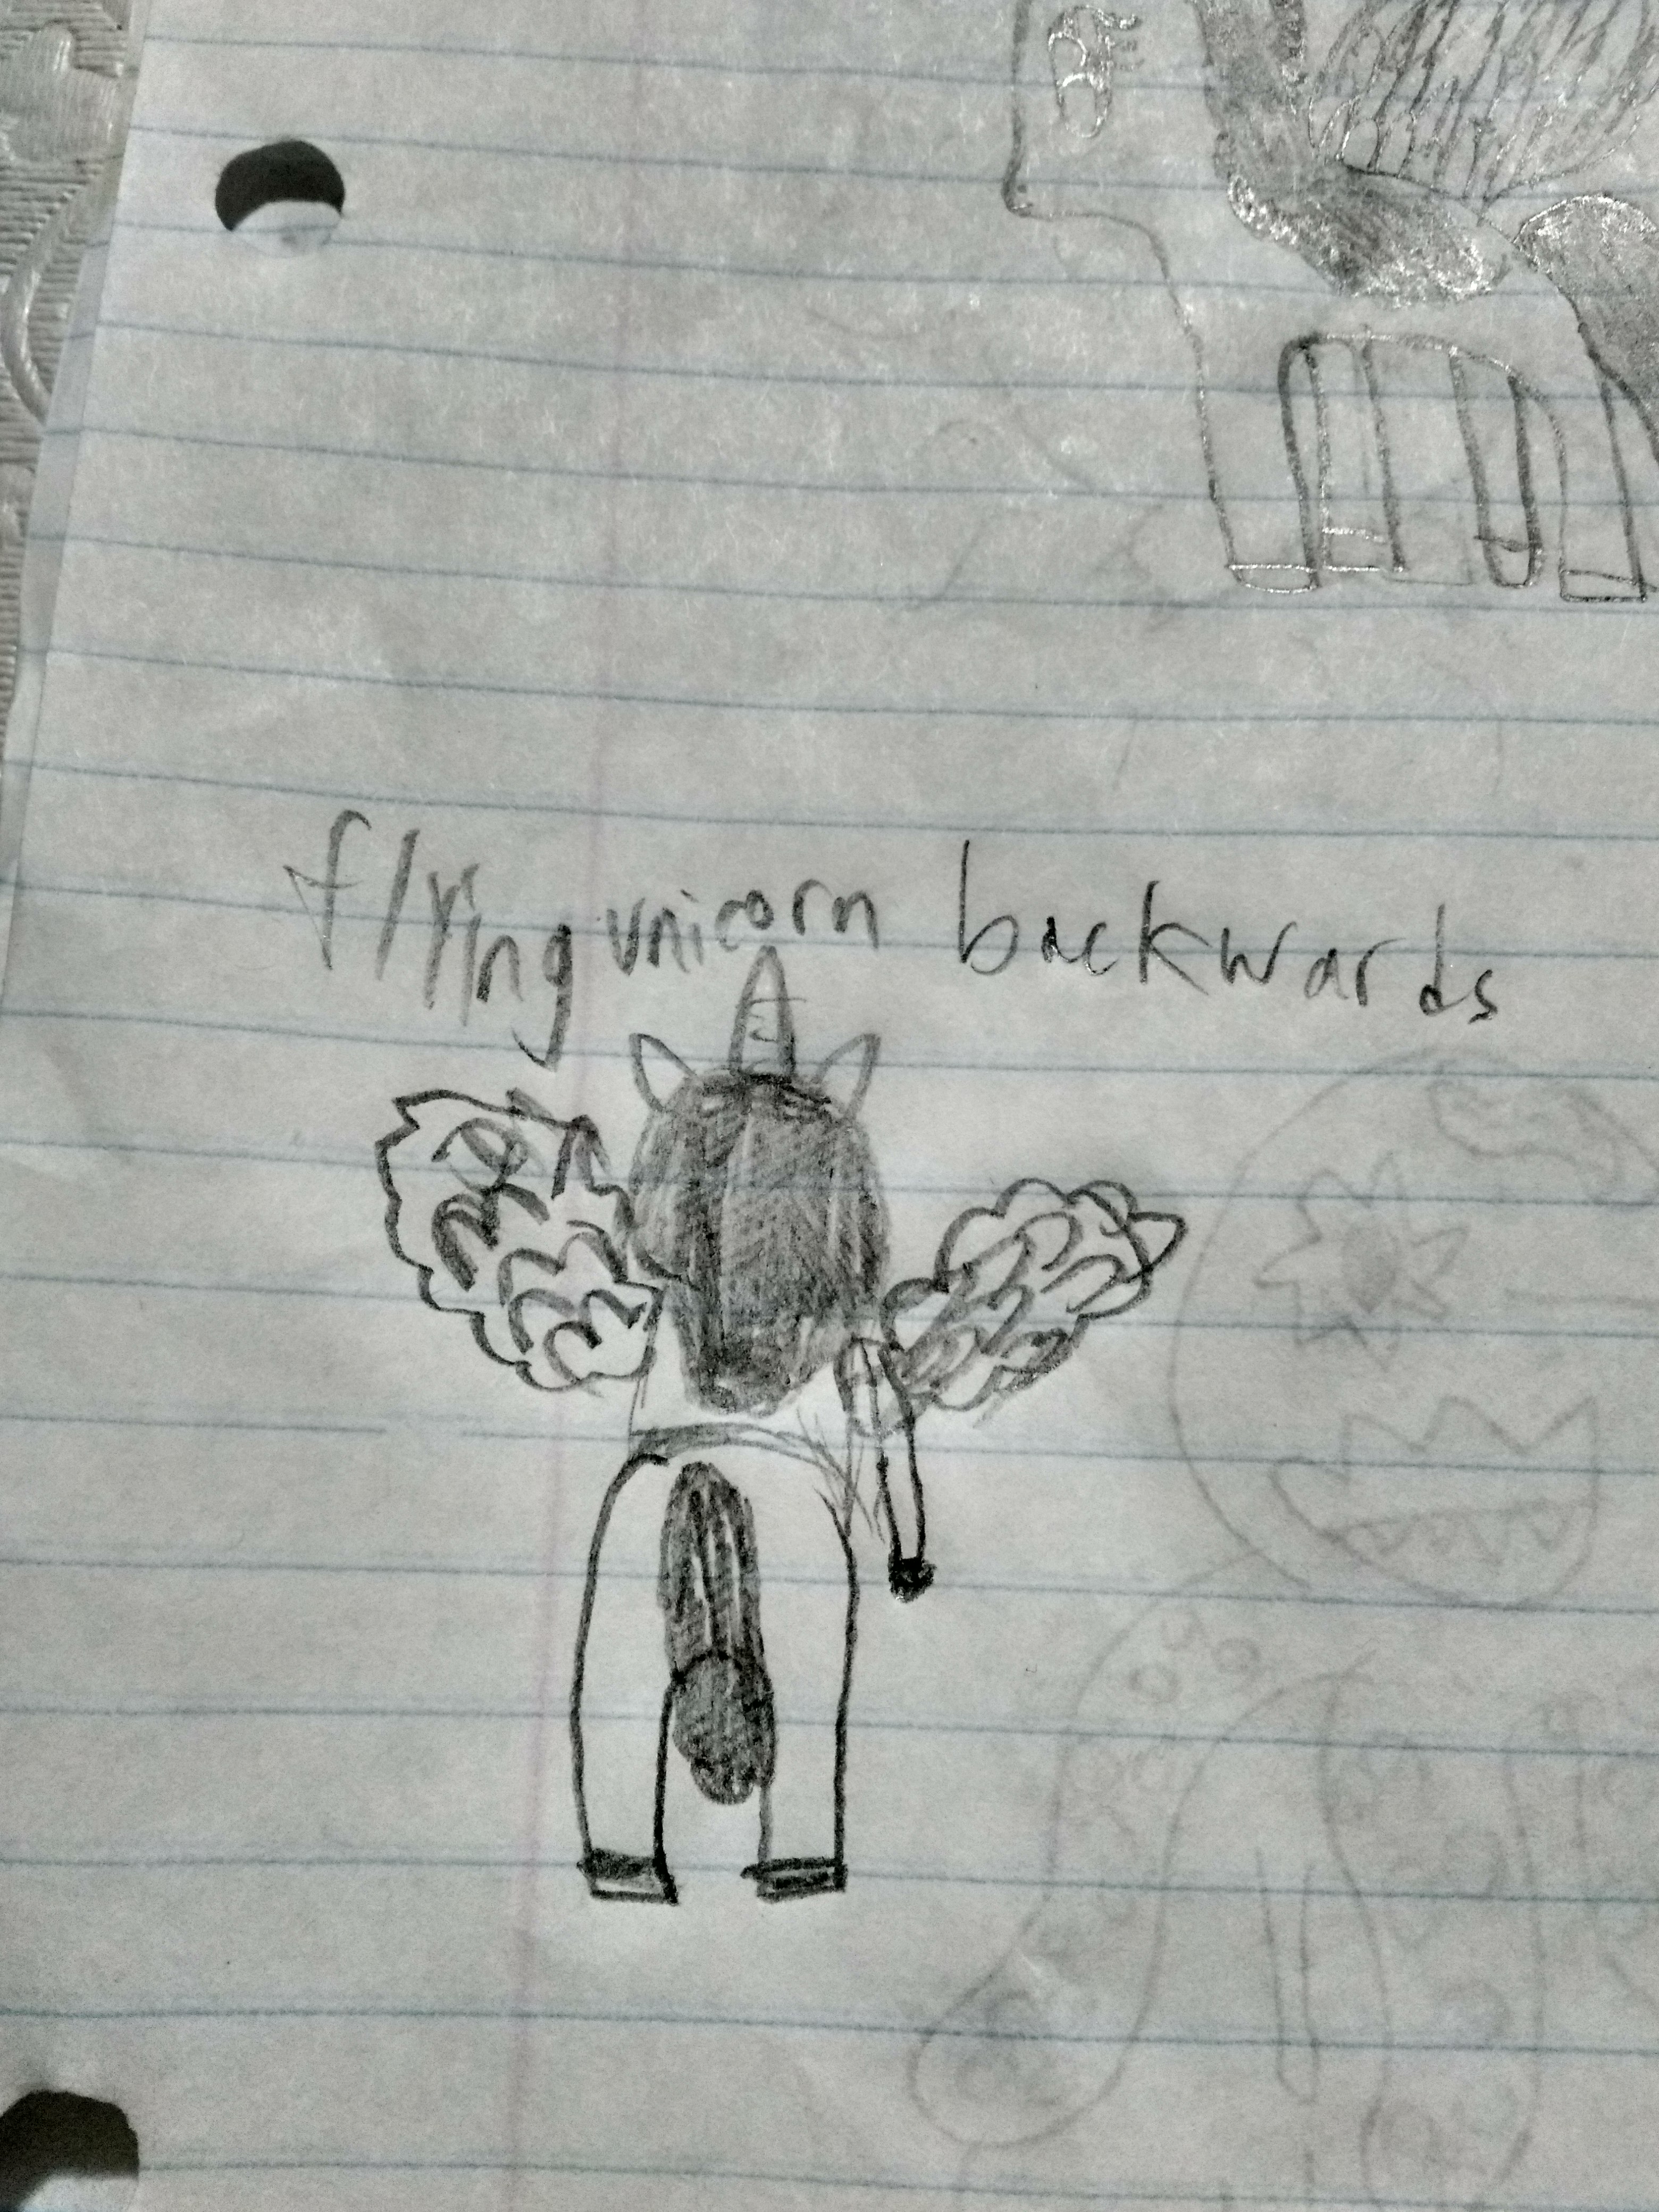 flying unicorn backwards